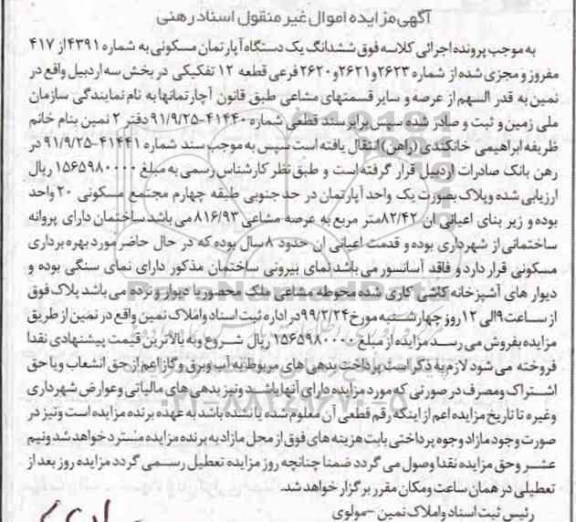 آگهی مزایده اموال غیر منقول اسناد رهنی
به موجب پرونده اجرائی کلاسه فوق ششدانگ یک دستگاه آپارتمان مسکونی به شماره ۴۳۹۱ از ۴۱۷
مفروز و مجزی شده از شماره ۲۶۲۳ و ۲۶۲۱ و ۲۶۲۰ فرعی قطعه ۱۲ تفکیکی در بخش سه اردبیل واقع در
نمین به قدر السهم از عرصه و سایر قسمتهای مشاعی طبق قانون آپارتمانها به نام نمایندگی سازمان
ملی زمین و ثبت و صادر شده سپس برابر سند قطعی شماره ۴۱۴۴۰-۹۱/۹/۲۵ دفتر ۲ نمین بنام خانم
ظریفه ابراهیمی خانکندی (راهن) انتقال یافته است سپس به موجب سند شماره ۴۱۴۴۱-۹۱/۹/۲۵ در
رهن بانک صادرات اردبیل قرار گرفته است و طبق نظر کارشناس رسمی به مبلغ ۱۵۶۵۹۸۰۰۰۰ ریال
ارزیابی شده وپلاک بصورت یک واحد آپارتمان در حد جنوبی طبقه چهارم مجتمع مسکونی ۲۰ واحد
بوده و زیر بنای اعیانی ان ۸۲/۴۲ متر مربع به عرصه مشاعی ۸۱۶/۹۳ می باشد ساختمان دارای پروانه
ساختمانی از شهرداری بوده و قدمت اعیانی ان حدود ۸ سال بوده که در حال حاضر مورد بهره برداری
مسکونی قرار دارد و فاقد آسانسور می باشد نمای بیرونی ساختمان مذکور دارای نمای سنگی بوده و
دیوار های آشپزخانه کاشی کاری شده محوطه مشاعی ملک محصور با دیوار و نرده می باشد پلاک فوق
از ساعت ۹ الی ۱۲ روز چهارشنبه مورخ ۹۹/۲/۲۴ در اداره ثبت اسناد واملاک نمین واقع در نمین از طریق
مزایده بفروش می رسد مزایده از مبلغ ۱۵۶۵۹۸۰۰۰۰ ریال شروع و به بالاترین قیمت پیشنهادی نقدا
فروخته می شود لازم به ذکر است پرداخت بدهی های مربوط به آب و برق و گاز اعم از حق انشعاب و یا حق
اشتراک ومصرف در صورتی که مورد مزایده دارای آنها باشد و نیز بدهی های مالیاتی وعوارض شهرداری
وغیره تا تاریخ مزایده اعم از اینکه رقم قطعی آن معلوم شده یا نشده باشد به عهده برنده مزایده است ونیز در
صورت وجود مازاد وجوه پرداختی بابت هزینه های فوق از محل مازاد به برنده مزایده مسترد خواهد شد ونیم
عشر وحق مزایده نقدا وصول می گردد ضمنا چنانچه روز مزایده تعطیل رسمی گردد مزایده روز بعد از
تعطیلی در همان ساعت ومکان مقرر برگزار خواهد شد.
رئیس ثبت اسناد واملاک نمین - مولوی